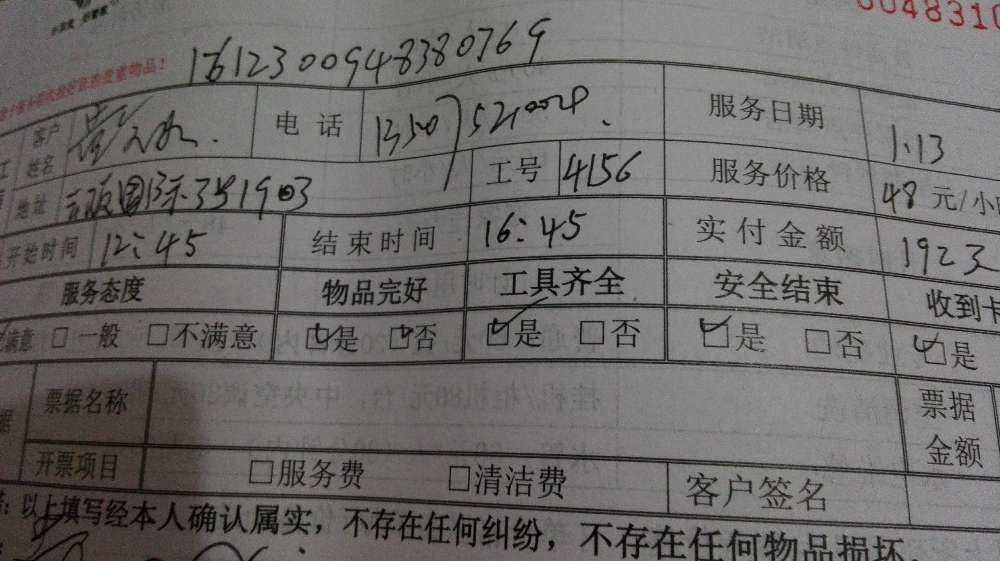 0048310
1612300948380769
客户姓名 电话 服务日期 1.13
地址 国际3号1903 工号 4156 服务价格 48 元/小
开始时间 12:45 结束时间 16:45 实付金额 192元
服务态度 物品完好 工具齐全 安全结束 收到卡
满意 □ 一般 □不满意 ☑是 ☑否 ☑是 □否 ☑是 □否 ☑是
票据名称 票据金额
开票项目 □服务费 □清洁费 客户签名
以上填写经本人确认属实，不存在任何纠纷，不存在任何物品损坏。